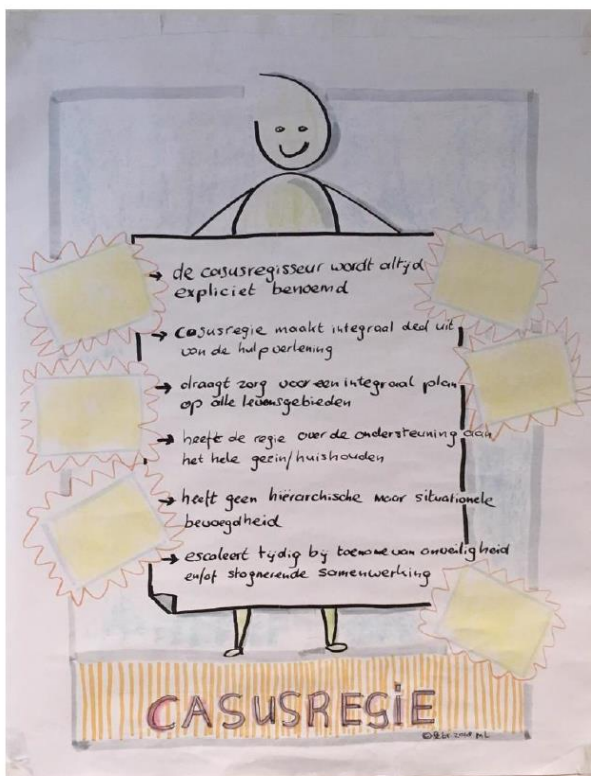 → de casusregisseur wordt altijd
expliciet benoemd
→ casusregie maakt integraal deel uit
van de hulpverlening
→ draagt zorg voor een integraal plan
op alle levensgebieden
→ heeft de regie over de ondersteuning aan
het hele gezin/huishouden
→ heeft geen hiërarchische maar situationele
bevoegdheid
→ escaleert tijdig bij toename van onveiligheid
en/of stagnerende samenwerking
CASUSREGIE